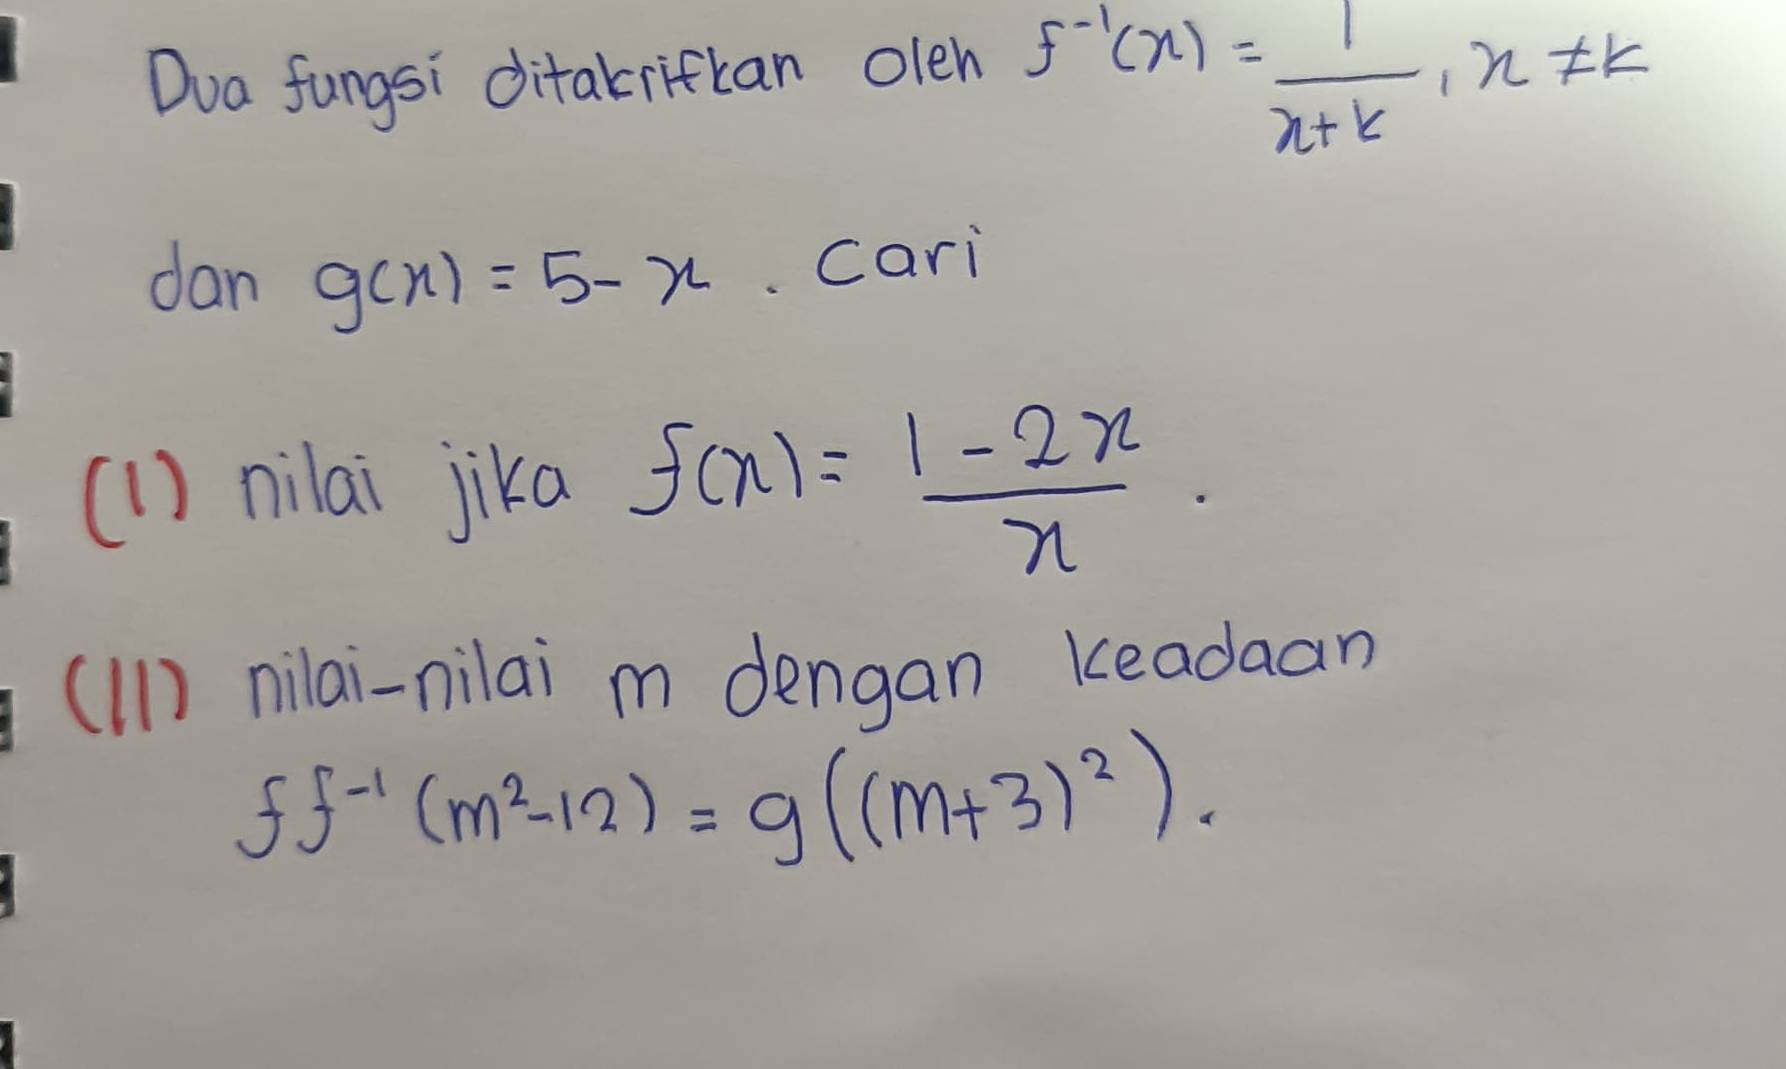 Dua fungsi ditakrifkan oleh f⁻¹(x) = 1/(x+k), x ≠ k
dan g(x) = 5 - x . cari
(I) nilai jika f(x) = (1 - 2x)/x .
(II) nilai-nilai m dengan keadaan
f f⁻¹ (m² - 12) = g((m+3)²).